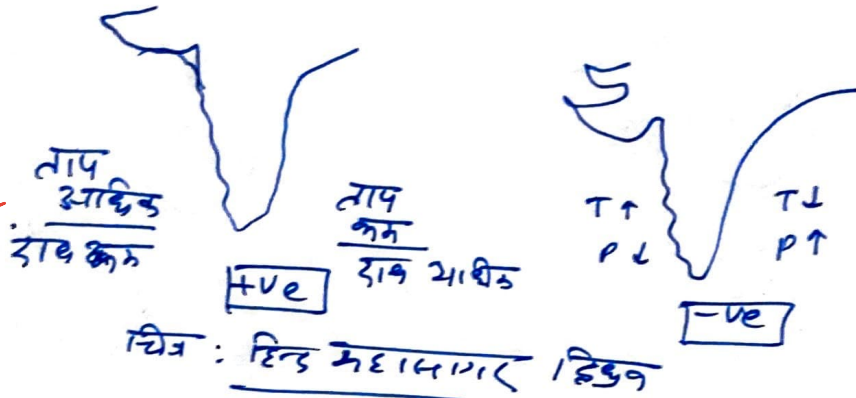 ताप
अधिक
दाब कम
ताप
कम
दाब अधिक
+ve
T↑
P↓
T↓
P↑
-ve
चित्र : हिन्द महासागर द्विध्रुव